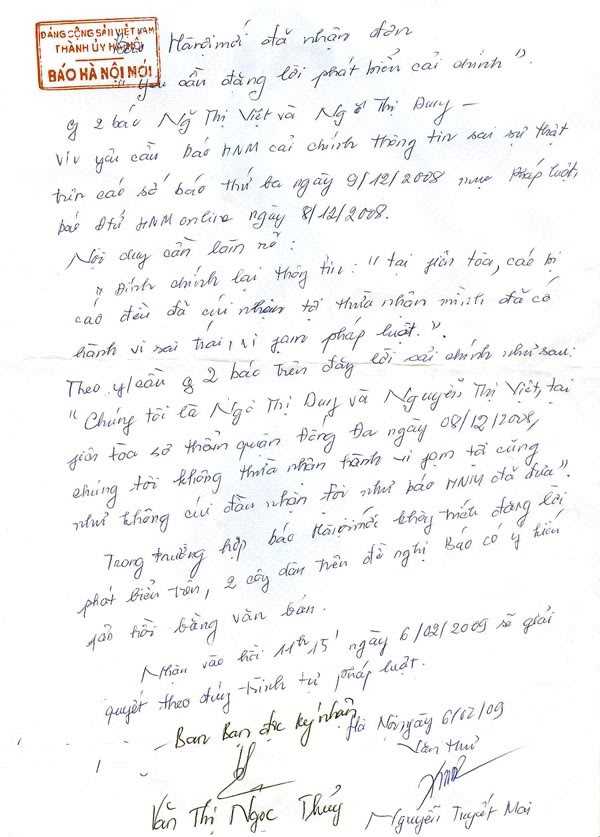 ĐẢNG CỘNG SẢN VIỆT NAM
THÀNH ỦY HÀ NỘI
BÁO HÀ NỘI MỚI
Hànộimới đã nhận đơn
"Yêu cầu đăng lời phát biểu cải chính".
2 bác Ng Thị Việt và Ngô Thị Dung –
V/v yêu cầu báo HNM cải chính thông tin sai sự thật
trên các số báo thứ ba ngày 9/12/2008 mục Pháp luật,
báo Đtử HNM online ngày 8/12/2008.
Nội dung cần làm rõ:
"Đính chính lại thông tin: "tại phiên tòa, các bị
cáo đều đã cúi nhận tội thừa nhận mình đã có
hành vi sai trái, vi phạm pháp luật.".
Theo y/cầu 2 bác trên đăng lời cải chính như sau:
"Chúng tôi là Ngô Thị Dung và Nguyễn Thị Việt, tại
phiên tòa sơ thẩm quận Đống Đa ngày 08/12/2008,
chúng tôi không thừa nhận hành vi phạm tội cũng
như không cúi đầu nhận tội như báo HNM đã đưa".
Trong trường hợp báo Hànộimới không đăng lời
phát biểu trên, 2 công dân trên đề nghị Báo có ý kiến
phản hồi bằng văn bản.
Nhận vào hồi 11h15' ngày 6/02/2009 sẽ giải
quyết theo đúng trình tự pháp luật.
Ban Bạn đọc ký nhận
Hà Nội, ngày 6/02/09
Văn thư
Văn Thị Ngọc Thủy
Nguyễn Tuyết Mai